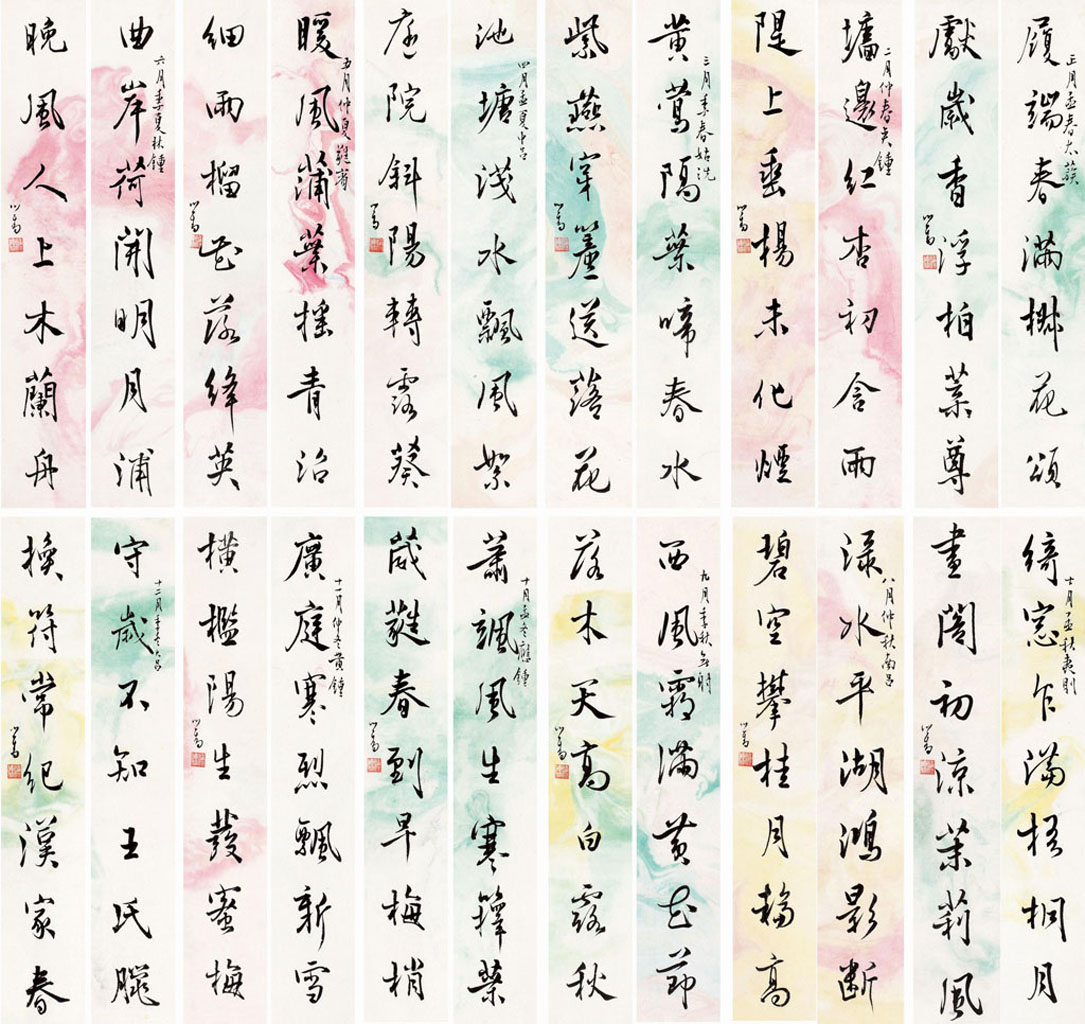 履端春滿椒花頌
正月孟春太蔟
獻歲香浮柏葉尊
心畬
墻邊紅杏初含雨
二月仲春夾鍾
隄上垂楊未化煙
心畬
黃鶯隔葉啼春水
三月季春姑洗
紫燕穿簾送落花
心畬
池塘淺水飄風絮
四月孟夏中呂
庭院斜陽轉露葵
心畬
暖風蒲葉搖青沼
五月仲夏蕤賓
細雨榴花落絳英
心畬
曲岸荷開明月浦
六月季夏林鍾
晚風人上木蘭舟
心畬
綺窗乍滿梧桐月
七月孟秋夷則
畫閣初涼茉莉風
心畬
淥水平湖鴻影斷
八月仲秋南呂
碧空攀桂月輪高
心畬
西風霜滿黃花節
九月季秋無射
落木天高白露秋
心畬
蕭颯風生寒籜葉
十月孟冬應鍾
葳蕤春到早梅梢
心畬
廣庭寒烈飄新雪
十一月仲冬黃鍾
橫檻陽生發蜜梅
心畬
守歲不知王氏臘
十二月季冬大呂
換符常紀漢家春
心畬